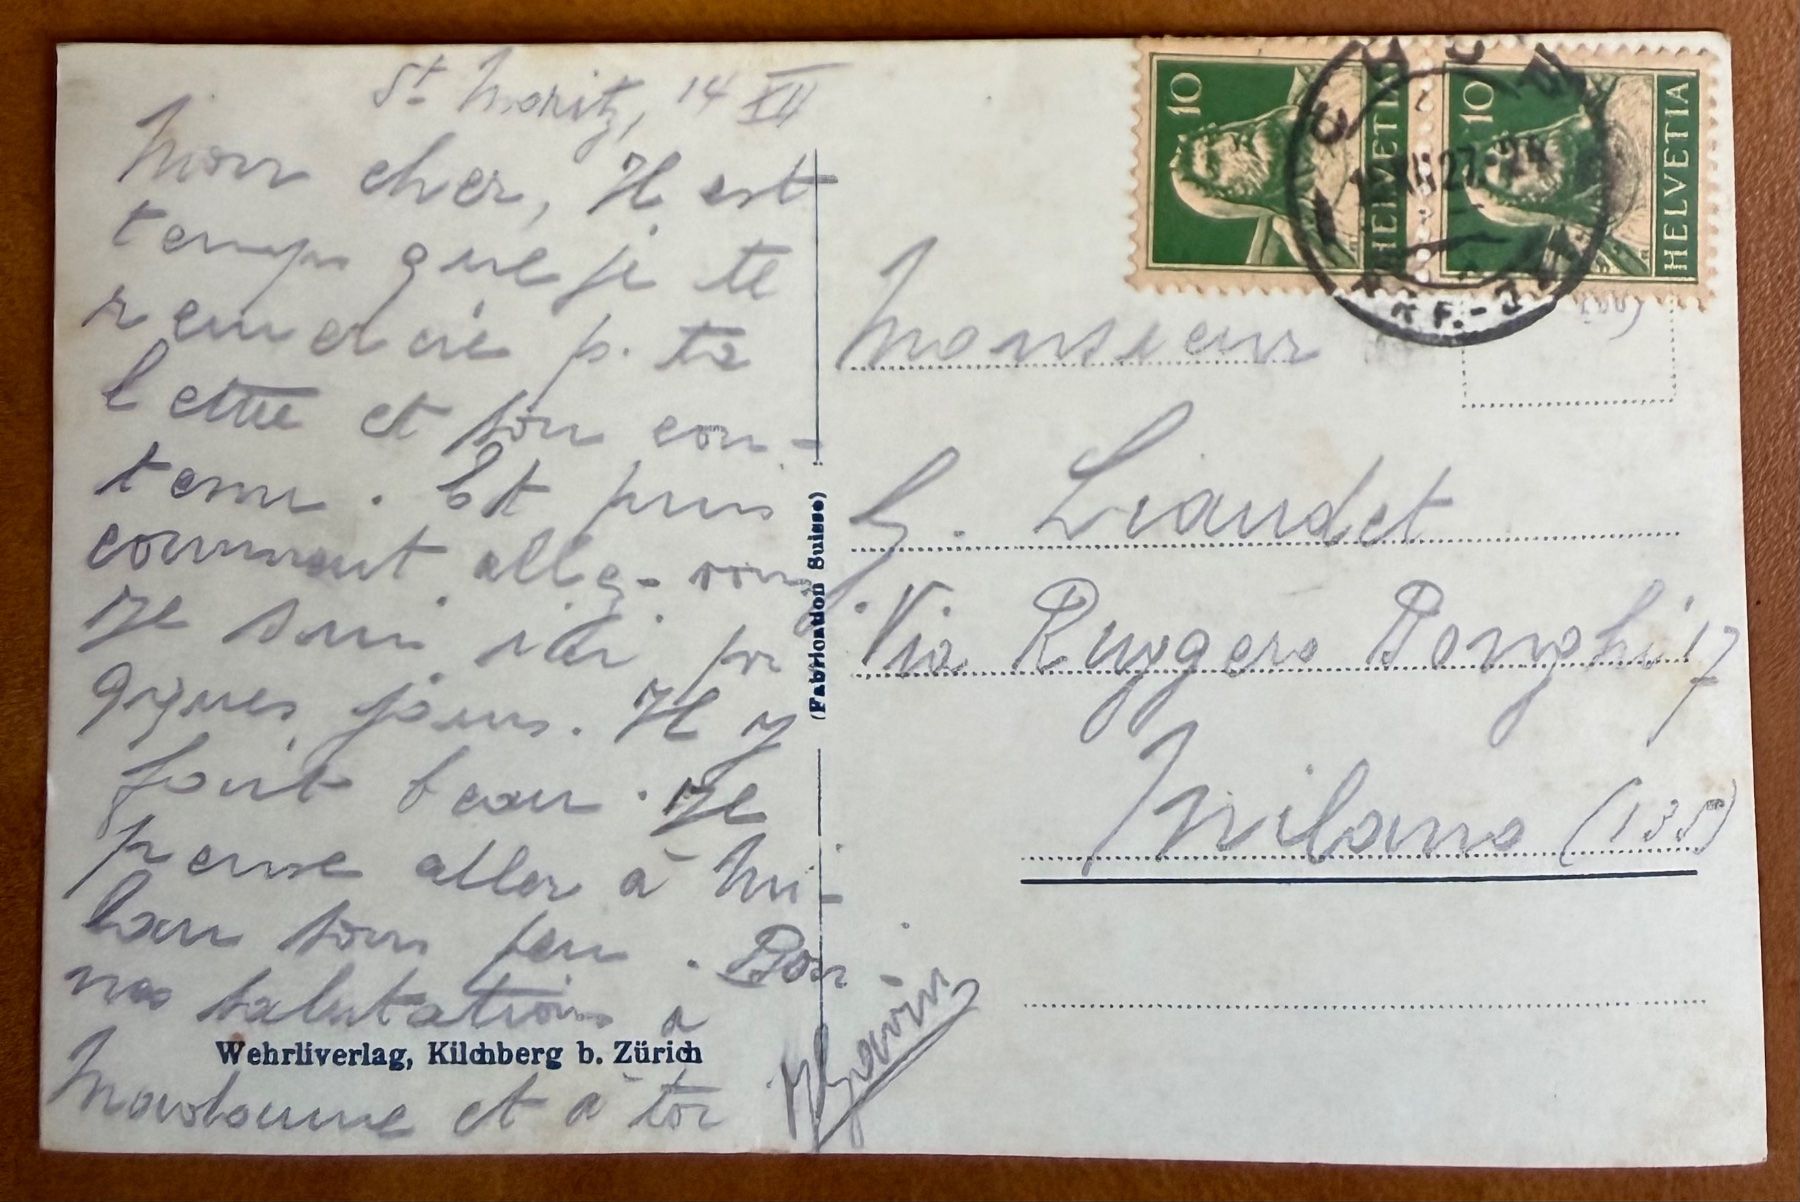 St Moritz, 14 XII
Mon cher, Il est
temps que je te
remercie p. ta
lettre et son con-
tenu. Et puis
comment allez-vous
Je suis ici pr
qques jours. Il y
fait beau. Je
pense aller à Mi-
lan sous peu. Bon-
nes salutations a
Madame et à toi
Wehrliverlag, Kilchberg b. Zürich
(Fabrication Suisse)
10 HELVETIA
10 HELVETIA
27
Monsieur
G. Liaudet
Via Ruggero Bonghi 17
Milano (135)